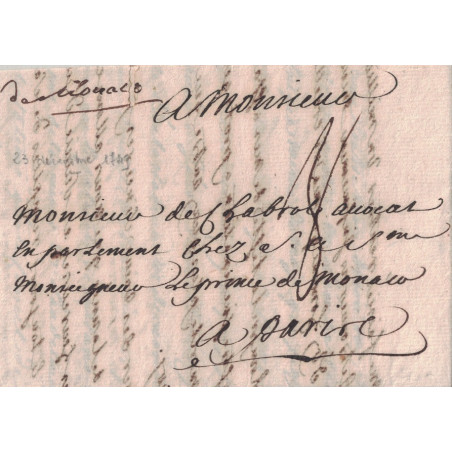 de Monaco
A Monsieur
23 1749
Monsieur de Chabrol avocat
en parlement chez S. A. Sme
Monseigneur Le prince de Monaco
A Paris